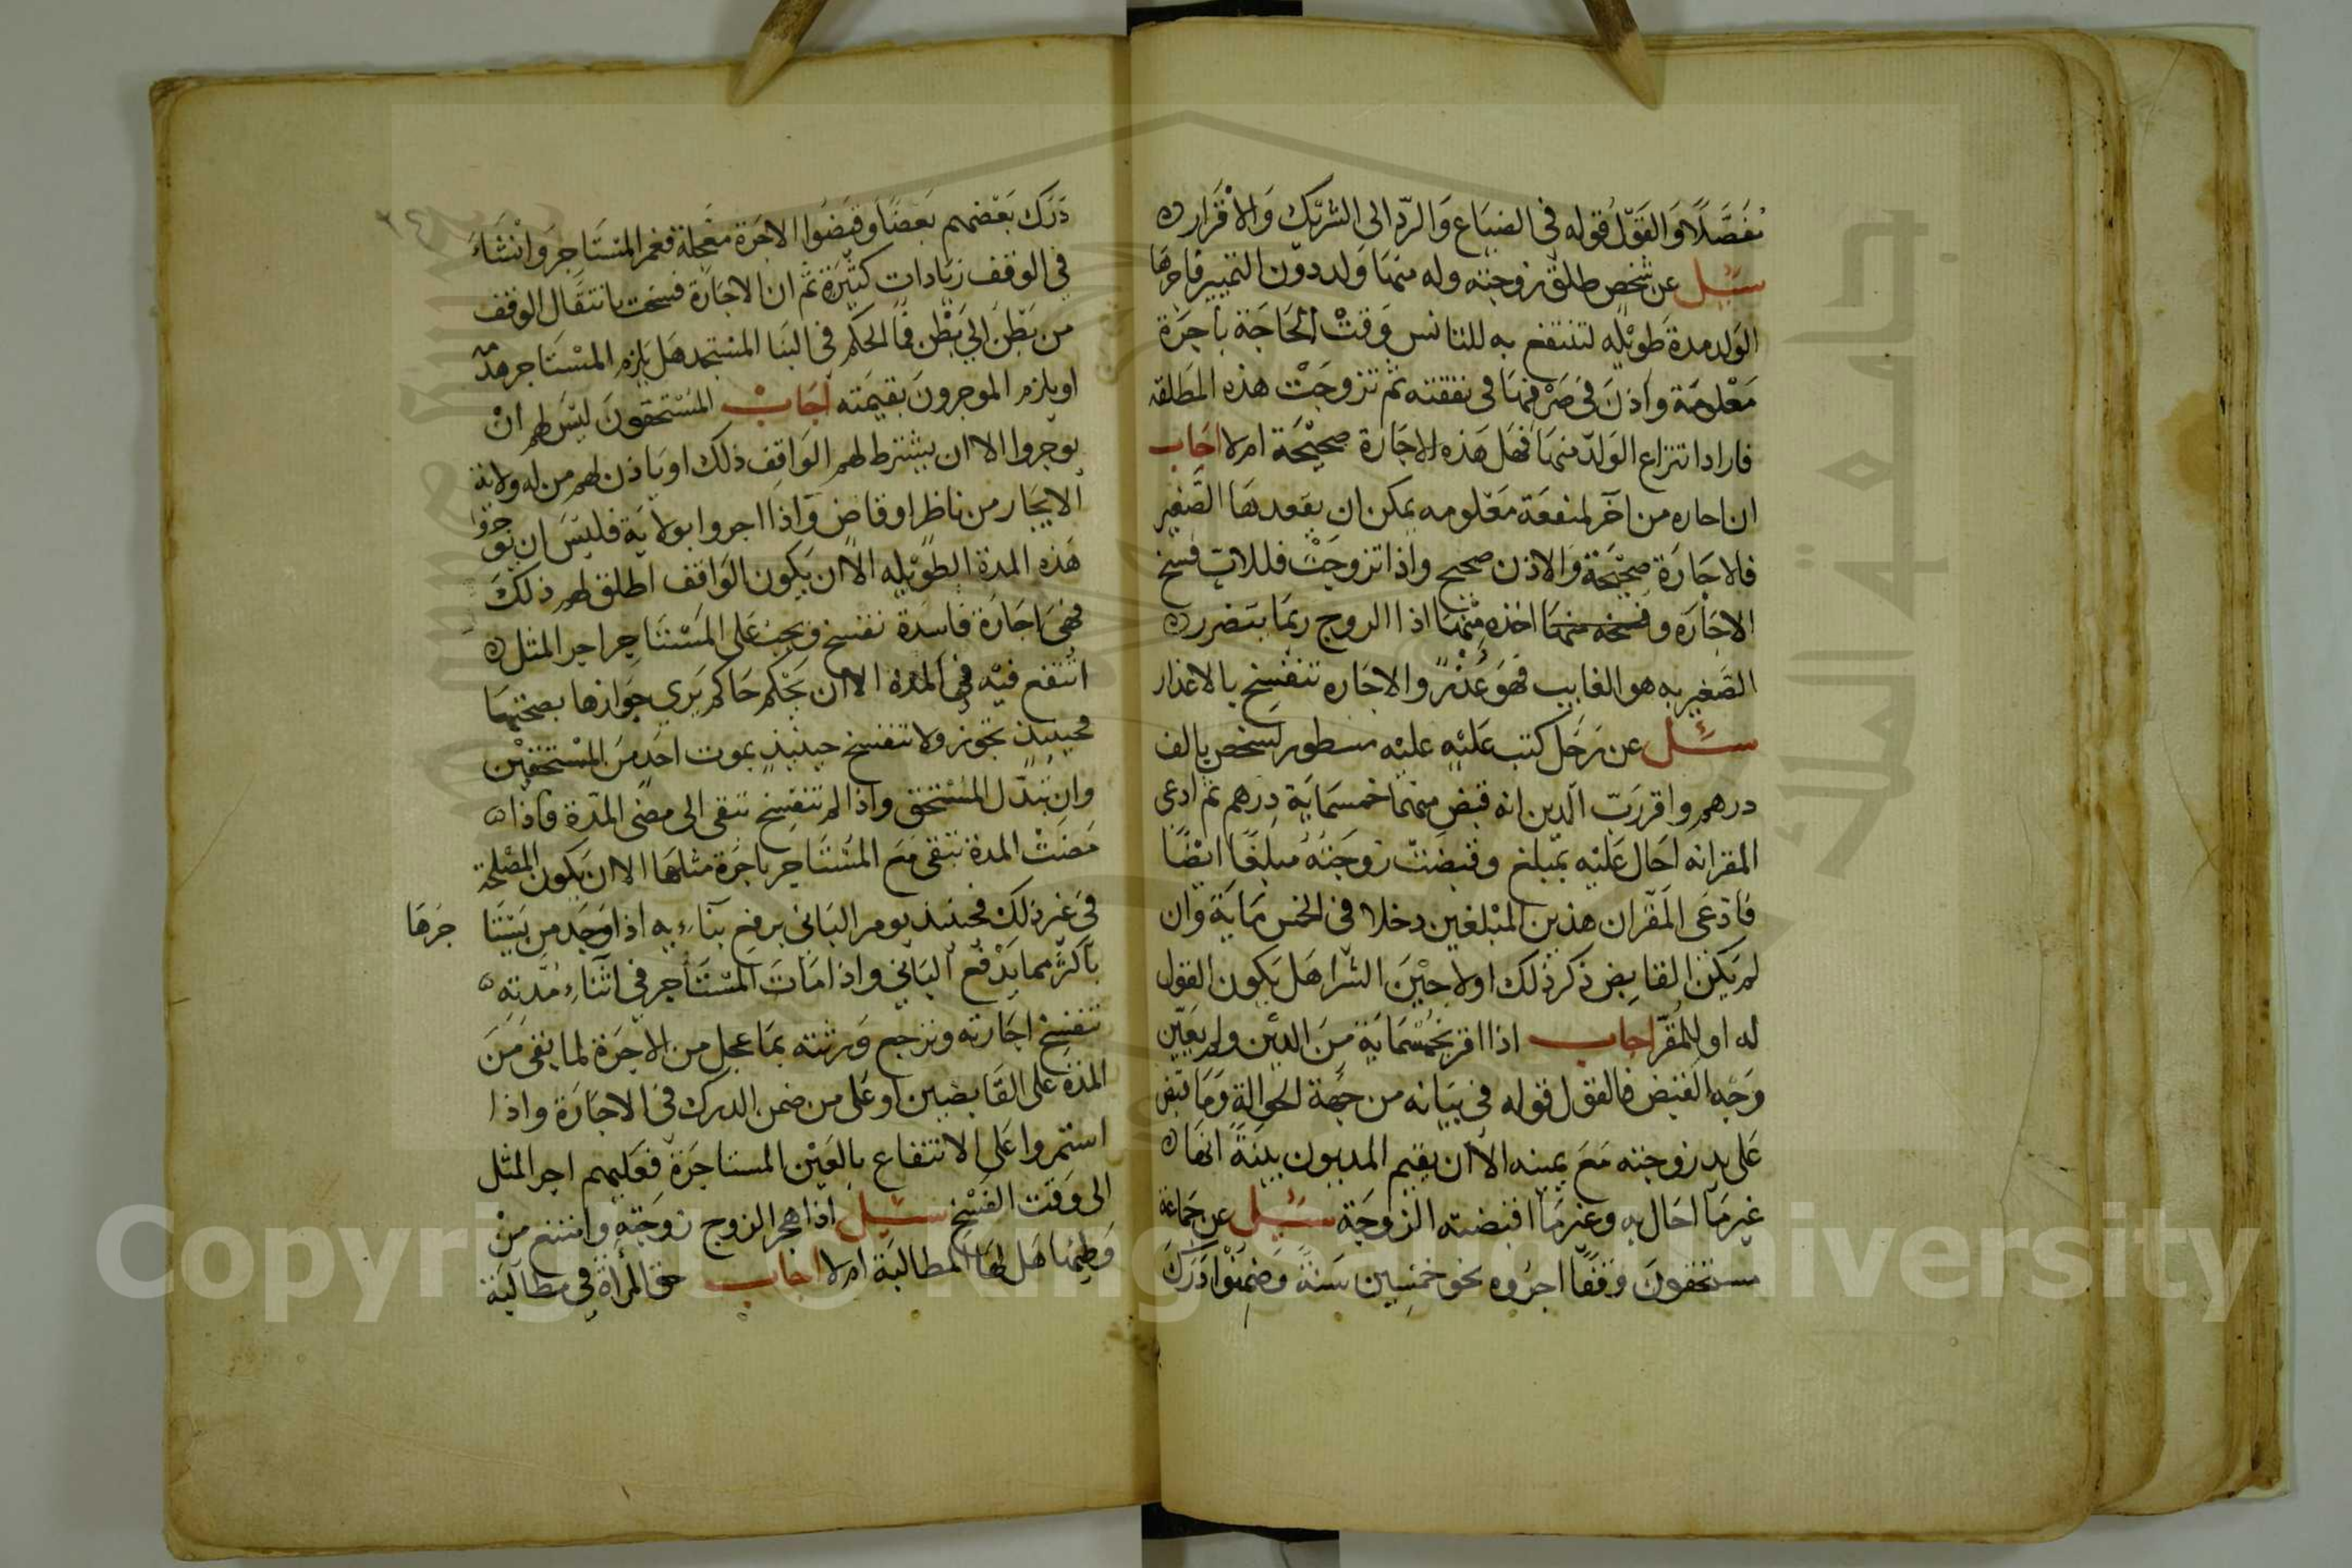 مفَصَّلًا وَالقَوْلُ قوله في الضيَاع وَالردّ الى الشريْك وَالاقْرَار
سئِل عن شخص طلق زوجته وله منهَا وَلد دون التمييز فاجرهَا
الوَلد مدة طوَيْله لتنتفع به للتانس وَقتْ الحَاجَة باجرَة
مَعْلومَة وَاذنَ في صَرْفهَا في نفقته ثم تزوجَتْ هذه المطَلقه
فاراد انتزاع الوَلد منهَا فهَل هَذه الاجَارة صحيْحَة ام لا اجَاب
ان اجاره من اخر لمنفعَة مَعْلومه يمكن ان يقَود بهَا الصَّغير
فالاجَارَة صحيْحَة وَالاذن صحيح واذا تزوجَتْ فللاب فسخ
الاجَارَه وفسخه منهَا اخذه منْهَا اذا الزوج ربمَا يتضرر
الصَّغير به هو الغَايب فهَوَ عُذْرٌ والاجَاره تنفسخ بالاعذار
سئل عن رَجَل كتب عَليْه عليْه مسطور لشخص بالف
درهم واقر رَبّ الدين انه قبَض منهَا خمسمَايَة درهم ثم ادعى
المقر انه احَال عَليْه بمبلغ وقبضَتْ زوجَتهُ مبلغًا ايْضًا
فادعَى المقَر ان هذين المبْلغين دخلا في الخمس مَايَة وَان
لم يَكن القابِض ذكر ذلك اولا حيْنَ الشرا هَل يَكون القول
له او للمُقرّ اجاب اذا اقر بخمْسمَايَة منَ الديْن ولم يعَيّن
وَجْه القبْض فالقول قوله في بيَانه من جهَة الحَوالة وَمَا قبض
عَلى يد زوجته مَعَ يمينه الا ان يقيم المديون بينَةً انهَا
غير مَا احَال به وغير مَا اقبضته الزوجَة سئِل عن جَماعَة
مستحقونَ وَقفًا اجرُوه نحو خمْسِين سَنةً وَضمنوْا دَرَك
دَرَك بَعْضهم بَعضًا وقبَضُوا الاجرَة معْجلة فعمر المستَاجرَ وانشَاءَ
في الوقف زيَادات كثيْرَة ثم ان الاجَارَة فسخت بانتقَال الوقف
من بَطْن الي بَطْن فما الحكم في البنَا المستجد هَل يَلزم المسْتَاجر هدمه
او يلزم الموجرونَ بقيمَته اجَاب المسْتَحقونَ ليْسَ لهم انْ
يوَجروا الا ان يشترط لهم الوَاقف ذلك او يَاذن لهم من له ولاية
الايجَار من ناظر او قاض وَاذا اجروا بولايَة فليْسَ ان يؤجروا
هَذه المدة الطوَيْله الا ان يَكون الوَاقف اطلق لهم ذلكَ
فهيَ اجَارَة فاسدَة تفسخ ويجبْ عَلى المسْتَاجر اجر المثل
انتفع فيْه في المدة الا ان يَحْكم حَاكم يَري جَوازها بصحتهَا
فحينيذ تجوز ولا تنفسخ حينيذٍ بموت احَدٍ منَ المسْتحقيْن
وان تبدَّل المسْتحق واذا لم تنفسِخ تبقى الى مضى المدَّة فاذا
مَضتْ المدة تبقى مَعَ المسْتَاجر باجرَة مثلهَا الا ان يَكون المصْلحَة
في غير ذلكَ فحينيذ يومر البَاني برفع بنَاءِ به اذا وَجَد من يَسْتَا جرهَا
باكثر مما يَدْفع البَاني واذا مَاتَ المستَأجر في اثنَاءِ مُدَّتِه
تنفسخ اجَارته وترجع وَرثته بمَا عجل من الاجرَة لما بقى منَ
المدَّة على القَابضين او عَلى من ضمن الدرك في الاجَارَة واذا
استمروا عَلى الانتفاع بالعَيْن المستاجَرَة فعَليهم اجر المثل
الى وَقت الفسْخ سئِل اذا هجر الزوج زوجَته وامتنع منْ
وَطيهَا هَل لهَا المطالبَة ام لا اجاب حق المرأة في مطالبَة